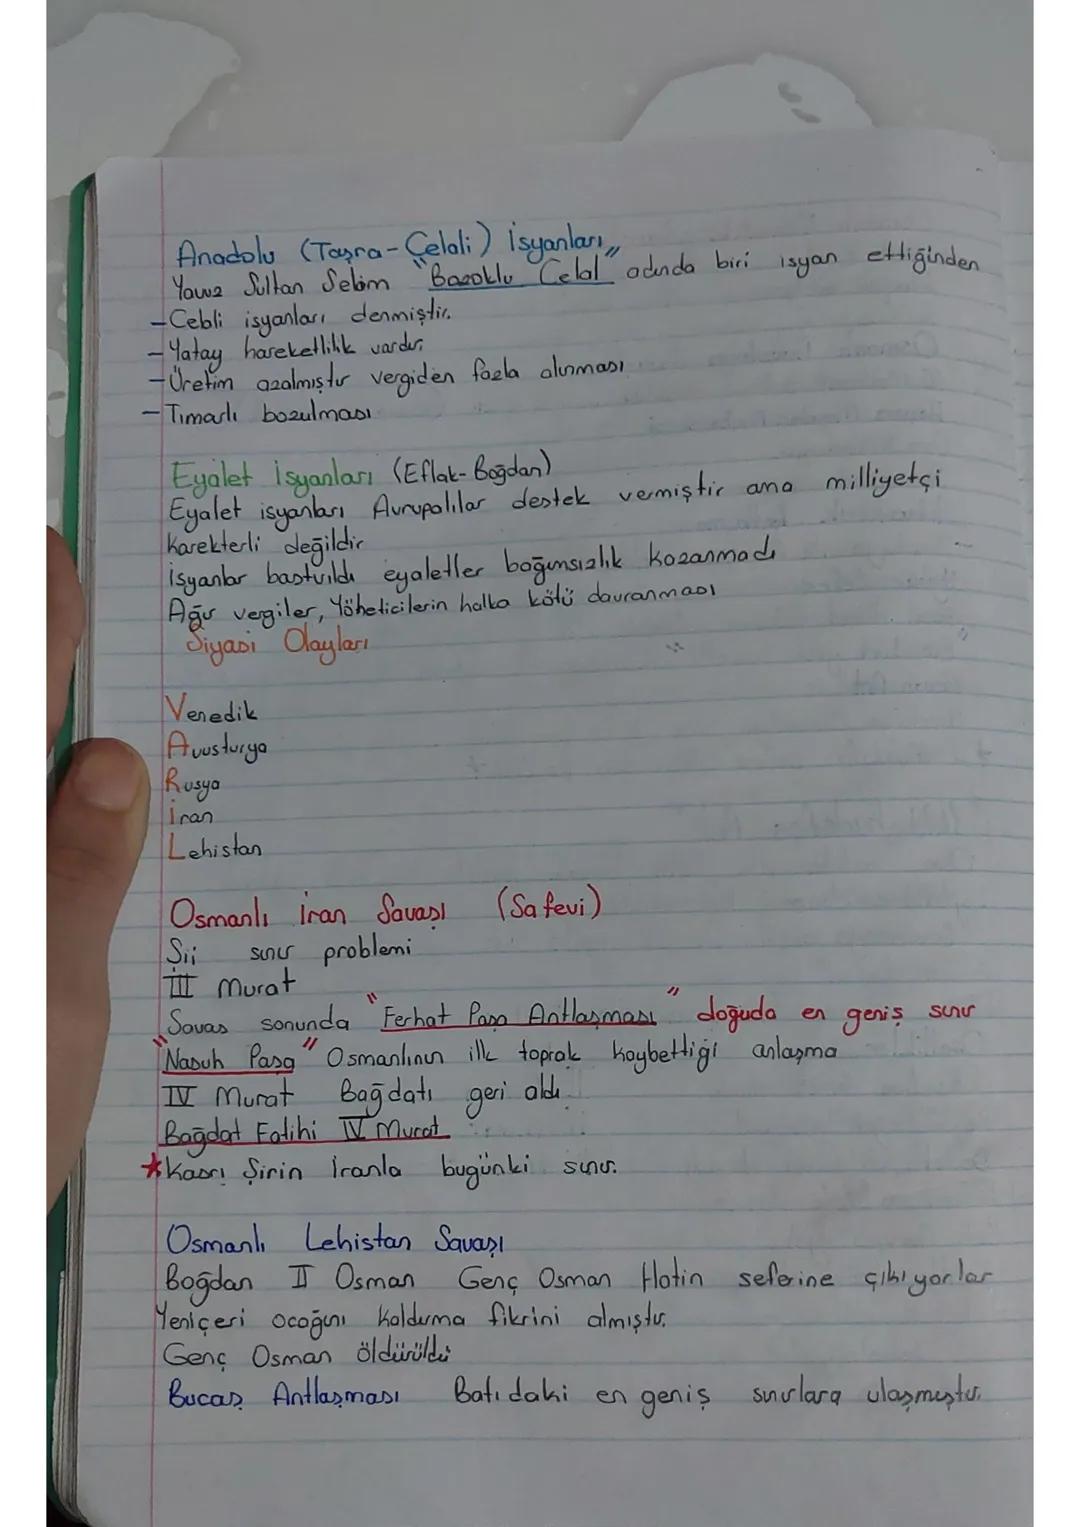 Anadolu (Taşra-Çelali) İsyanları
Yavuz Sultan Selim "Bozoklu Celal" adında biri isyan ettiğinden
-Cebli isyanları denmiştir.
-Yatay hareketlilik vardır.
-Üretim azalmıştır vergiden fazla alınması
-Tımarlı bozulması
Eyalet İsyanları (Eflak-Boğdan)
Eyalet isyanları Avrupalılar destek vermiştir ama milliyetçi
karekterli değildir
İsyanlar bastırıldı eyaletler bağımsızlık kazanmadı
Ağır vergiler, Yöneticilerin halka kötü davranması
Siyasi Olayları
Venedik
Avusturya
Rusya
İran
Lehistan
Osmanlı İran Savaşı (Safevi)
Şii sınır problemi
III Murat
Savaş sonunda "Ferhat Paşa Antlaşması" doğuda en geniş sınır
"Nasuh Paşa" Osmanlının ilk toprak kaybettiği anlaşma
IV Murat Bağdatı geri aldı.
Bağdat Fatihi IV Murat
*Kasrı Şirin İranla bugünki sınır.
Osmanlı Lehistan Savaşı
Boğdan II Osman Genç Osman Hotin seferine çıkıyorlar
Yeniçeri ocağını kaldırma fikrini almıştır.
Genç Osman öldürüldü
Bucaş Antlaşması Batıdaki en geniş sınırlara ulaşmıştır.